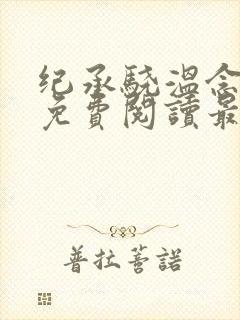 纪承骁温念
免費閱讀最
普拉蕃諾